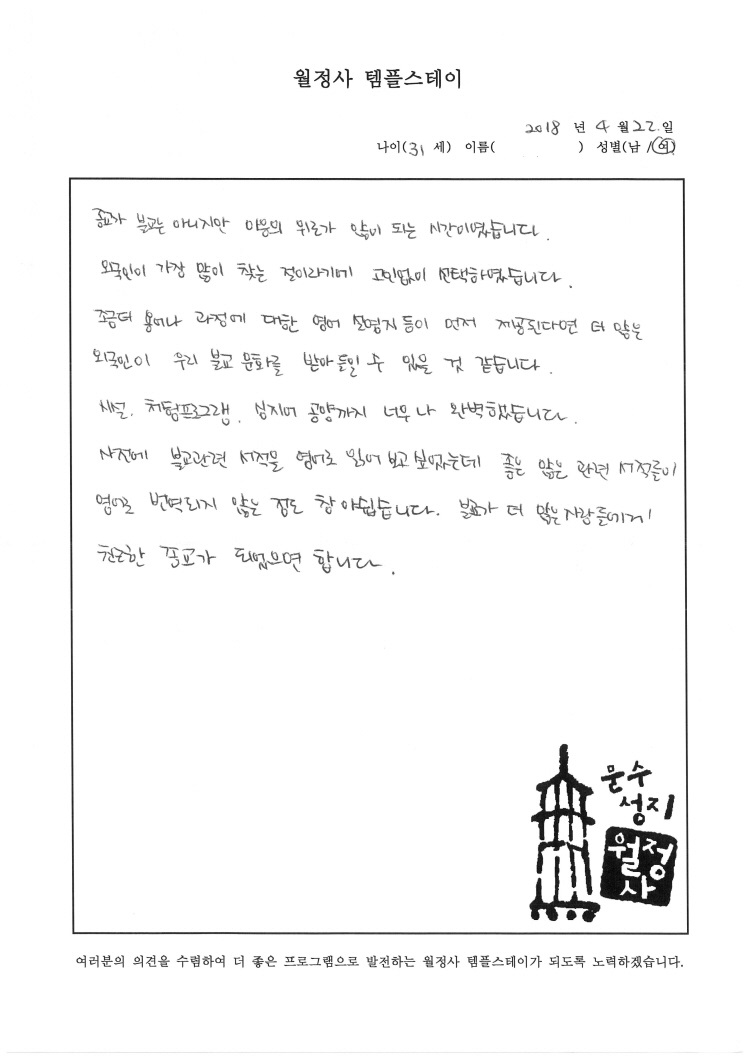 월정사 템플스테이
2018 년 4 월 22 일
나이(31 세) 이름( ) 성별(남 / 여)
종교가 불교는 아니지만 마음의 위로가 많이 되는 시간이였습니다.
외국인이 가장 많이 찾는 절이라기에 고민없이 선택하였습니다.
조금더 용어나 과정에 대한 영어 설명지 등이 먼저 제공된다면 더 많은
외국인이 우리 불교 문화를 받아 들일 수 있을 것 같습니다.
시설, 체험프로그램, 심지어 공양까지 너무나 완벽했습니다.
사전에 불교관련 서적을 영어로 읽어 보고 싶었는데 좋은 많은 관련 서적들이
영어로 번역되지 않은 점도 참 아쉽습니다. 불교가 더 많은 사람들에게
친근한 종교가 되었으면 합니다.
문수
성지
월정
사
여러분의 의견을 수렴하여 더 좋은 프로그램으로 발전하는 월정사 템플스테이가 되도록 노력하겠습니다.